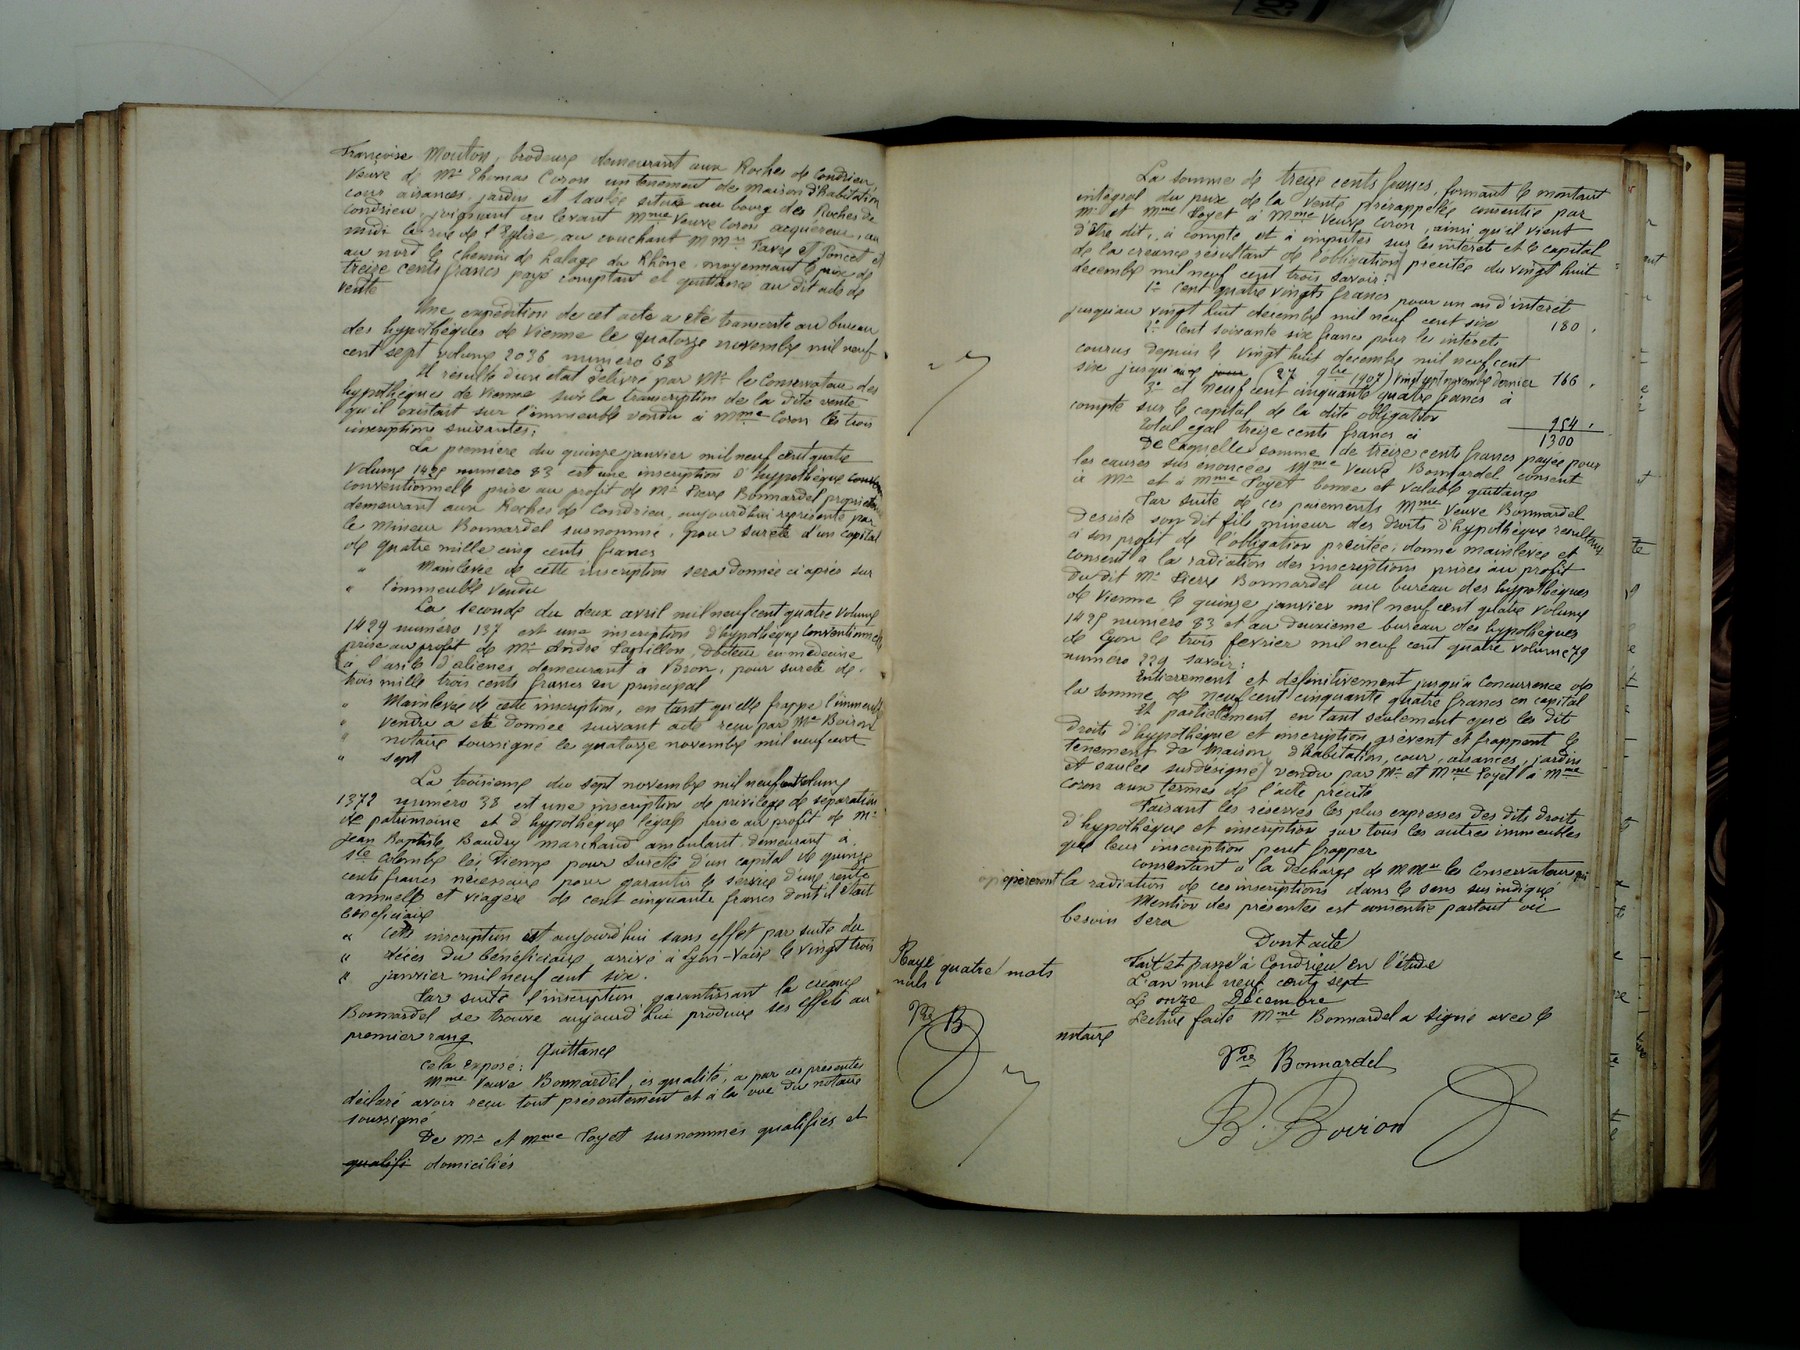 Françoise Mouton, brodeuse demeurant aux Roches de Condrieu
Veuve de Mr Thomas Coron un tenement de Maison d'habitation
cour aisances, jardin et saulée situé au bourg des Roches de
Condrieu, joignant au levant Mme Veuve Coron acquereur, au
midi la rue de l'Eglise, au couchant MMrs Favre et Poncet et
au nord le chemin de halage du Rhône, moyennant le prix de
treize cents francs payé comptant et quittancé au dit acte de
vente
Une expédition de cet acte a été transcrite au bureau
des hypothèques de Vienne le quatorze novembre mil neuf
cent sept volume 2026 numéro 68
Il résulte d'un état délivré par Mr le Conservateur des
hypothèques de Vienne sur la transcription de la dite vente
qu'il existait sur l'immeuble vendu à Mme Coron les trois
inscriptions suivantes:
La première du quinze janvier mil neuf cent quatre
Volume 1425 numéro 83 est une inscription d'hypothèque
conventionnelle prise au profit de Mr Pierre Bonnardel propriétaire
demeurant aux Roches de Condrieu, aujourd'hui représenté par
le Mineur Bonnardel susnommé, pour sureté d'un capital
de quatre mille cinq cents francs
" Mainlevée de cette inscription sera donnée ci après sur
" l'immeuble vendu
La seconde du deux avril mil neuf cent quatre volume
1429 numéro 137 est une inscription d'hypothèque Conventionnelle
prise au profit de Mr André Papillon, docteur en médecine
à l'asile d'aliénés demeurant à Bron, pour sureté de
trois mille trois cents francs en principal
" Mainlevée de cette inscription, en tant qu'elle frappe l'immeuble
" vendu a été donnée suivant acte reçu par Me Boiron
" notaire soussigné le quatorze novembre mil neuf cent
" sept
La troisième du sept novembre mil neuf cent volume
1372 numéro 38 est une inscription de privilège de séparation
de patrimoine et d'hypothèque légale prise au profit de Mr
Jean Baptiste Baudry marchand ambulant demeurant à
Ste Colombe les Vienne pour sureté d'un capital de quinze
cents francs nécessaire pour garantir le service d'une rente
annuelle et viagère de cent cinquante francs dont il était
bénéficiaire
" Cette inscription est aujourd'hui sans effet par suite du
" décès du bénéficiaire arrivé à Lyon-Vaise le vingt trois
" janvier mil neuf cent six.
Par suite l'inscription garantissant la créance
Bonnardel se trouve aujourd'hui produire ses effets au
premier rang
Quittance
Cela exposé:
Mme Veuve Bonnardel, ès qualité, a par ces présentes
déclaré avoir reçu tout présentement et à la vue du notaire
soussigné
De Mr et Mme Poyet susnommés qualifiés et
qualifi domiciliés
La somme de treize cents francs, formant le montant
intégral du prix de la vente prérappelée consentie par
Mr et Mme Poyet à Mme Veuve Coron, ainsi qu'il vient
d'être dit, à compte et à imputer sur les intérêts et le capital
de la créance résultant de l'obligation précitée du vingt huit
décembre mil neuf cent trois savoir:
1° cent quatre vingts francs pour un an d'intérêt
jusqu'au vingt huit décembre mil neuf cent six 180.
2° Cent soixante six francs pour les intérêts
courus depuis le vingt huit décembre mil neuf cent
six jusqu'au (27 9bre 1907) vingt sept novembre dernier 166.
3° et neuf cent cinquante quatre francs à
compte sur le capital de la dite obligation 954.
Total egal treize cents francs ci 1300
De laquelle somme de treize cents francs payée pour
les causes sus énoncées Mme Veuve Bonnardel consent
à Mr et à Mme Poyet bonne et valable quittance
Par suite de ces paiements Mme Veuve Bonnardel
désiste son dit fils mineur des droits d'hypothèque résultant
à son profit de l'obligation précitée, donne mainlevée et
consent à la radiation des inscriptions prises au profit
du dit Mr Pierre Bonnardel au bureau des hypothèques
de Vienne le quinze janvier mil neuf cent quatre volume
1425 numéro 83 et au deuxième bureau des hypothèques
de Lyon le trois février mil neuf cent quatre volume 79
numéro 229 savoir:
Entièrement et définitivement jusqu'à concurrence de
la somme de neuf cent cinquante quatre francs en capital
Et partiellement, en tant seulement que les dits
droits d'hypothèque et inscription grèvent et frappent le
tenement de maison d'habitation, cour, aisances, jardin
et saulée susdésigné vendu par Mr et Mme Poyet à Mme
Coron aux termes de l'acte précité
Faisant les réserves les plus expresses des dits droits
d'hypothèque et inscription sur tous les autres immeubles
que leur inscription peut frapper
Consentant à la décharge de MMrs les Conservateurs qui
opèreront la radiation de ces inscriptions dans le sens sus indiqué
Mention des présentes est consentie partout où
besoin sera
Dont acte
Fait et passé à Condrieu en l'étude
L'an mil neuf cents sept
Le onze Décembre
Lecture faite Mme Bonnardel a signé avec le
notaire
Rayé quatre mots
nuls
Vve B
Vve Bonnardel
B. Boiron